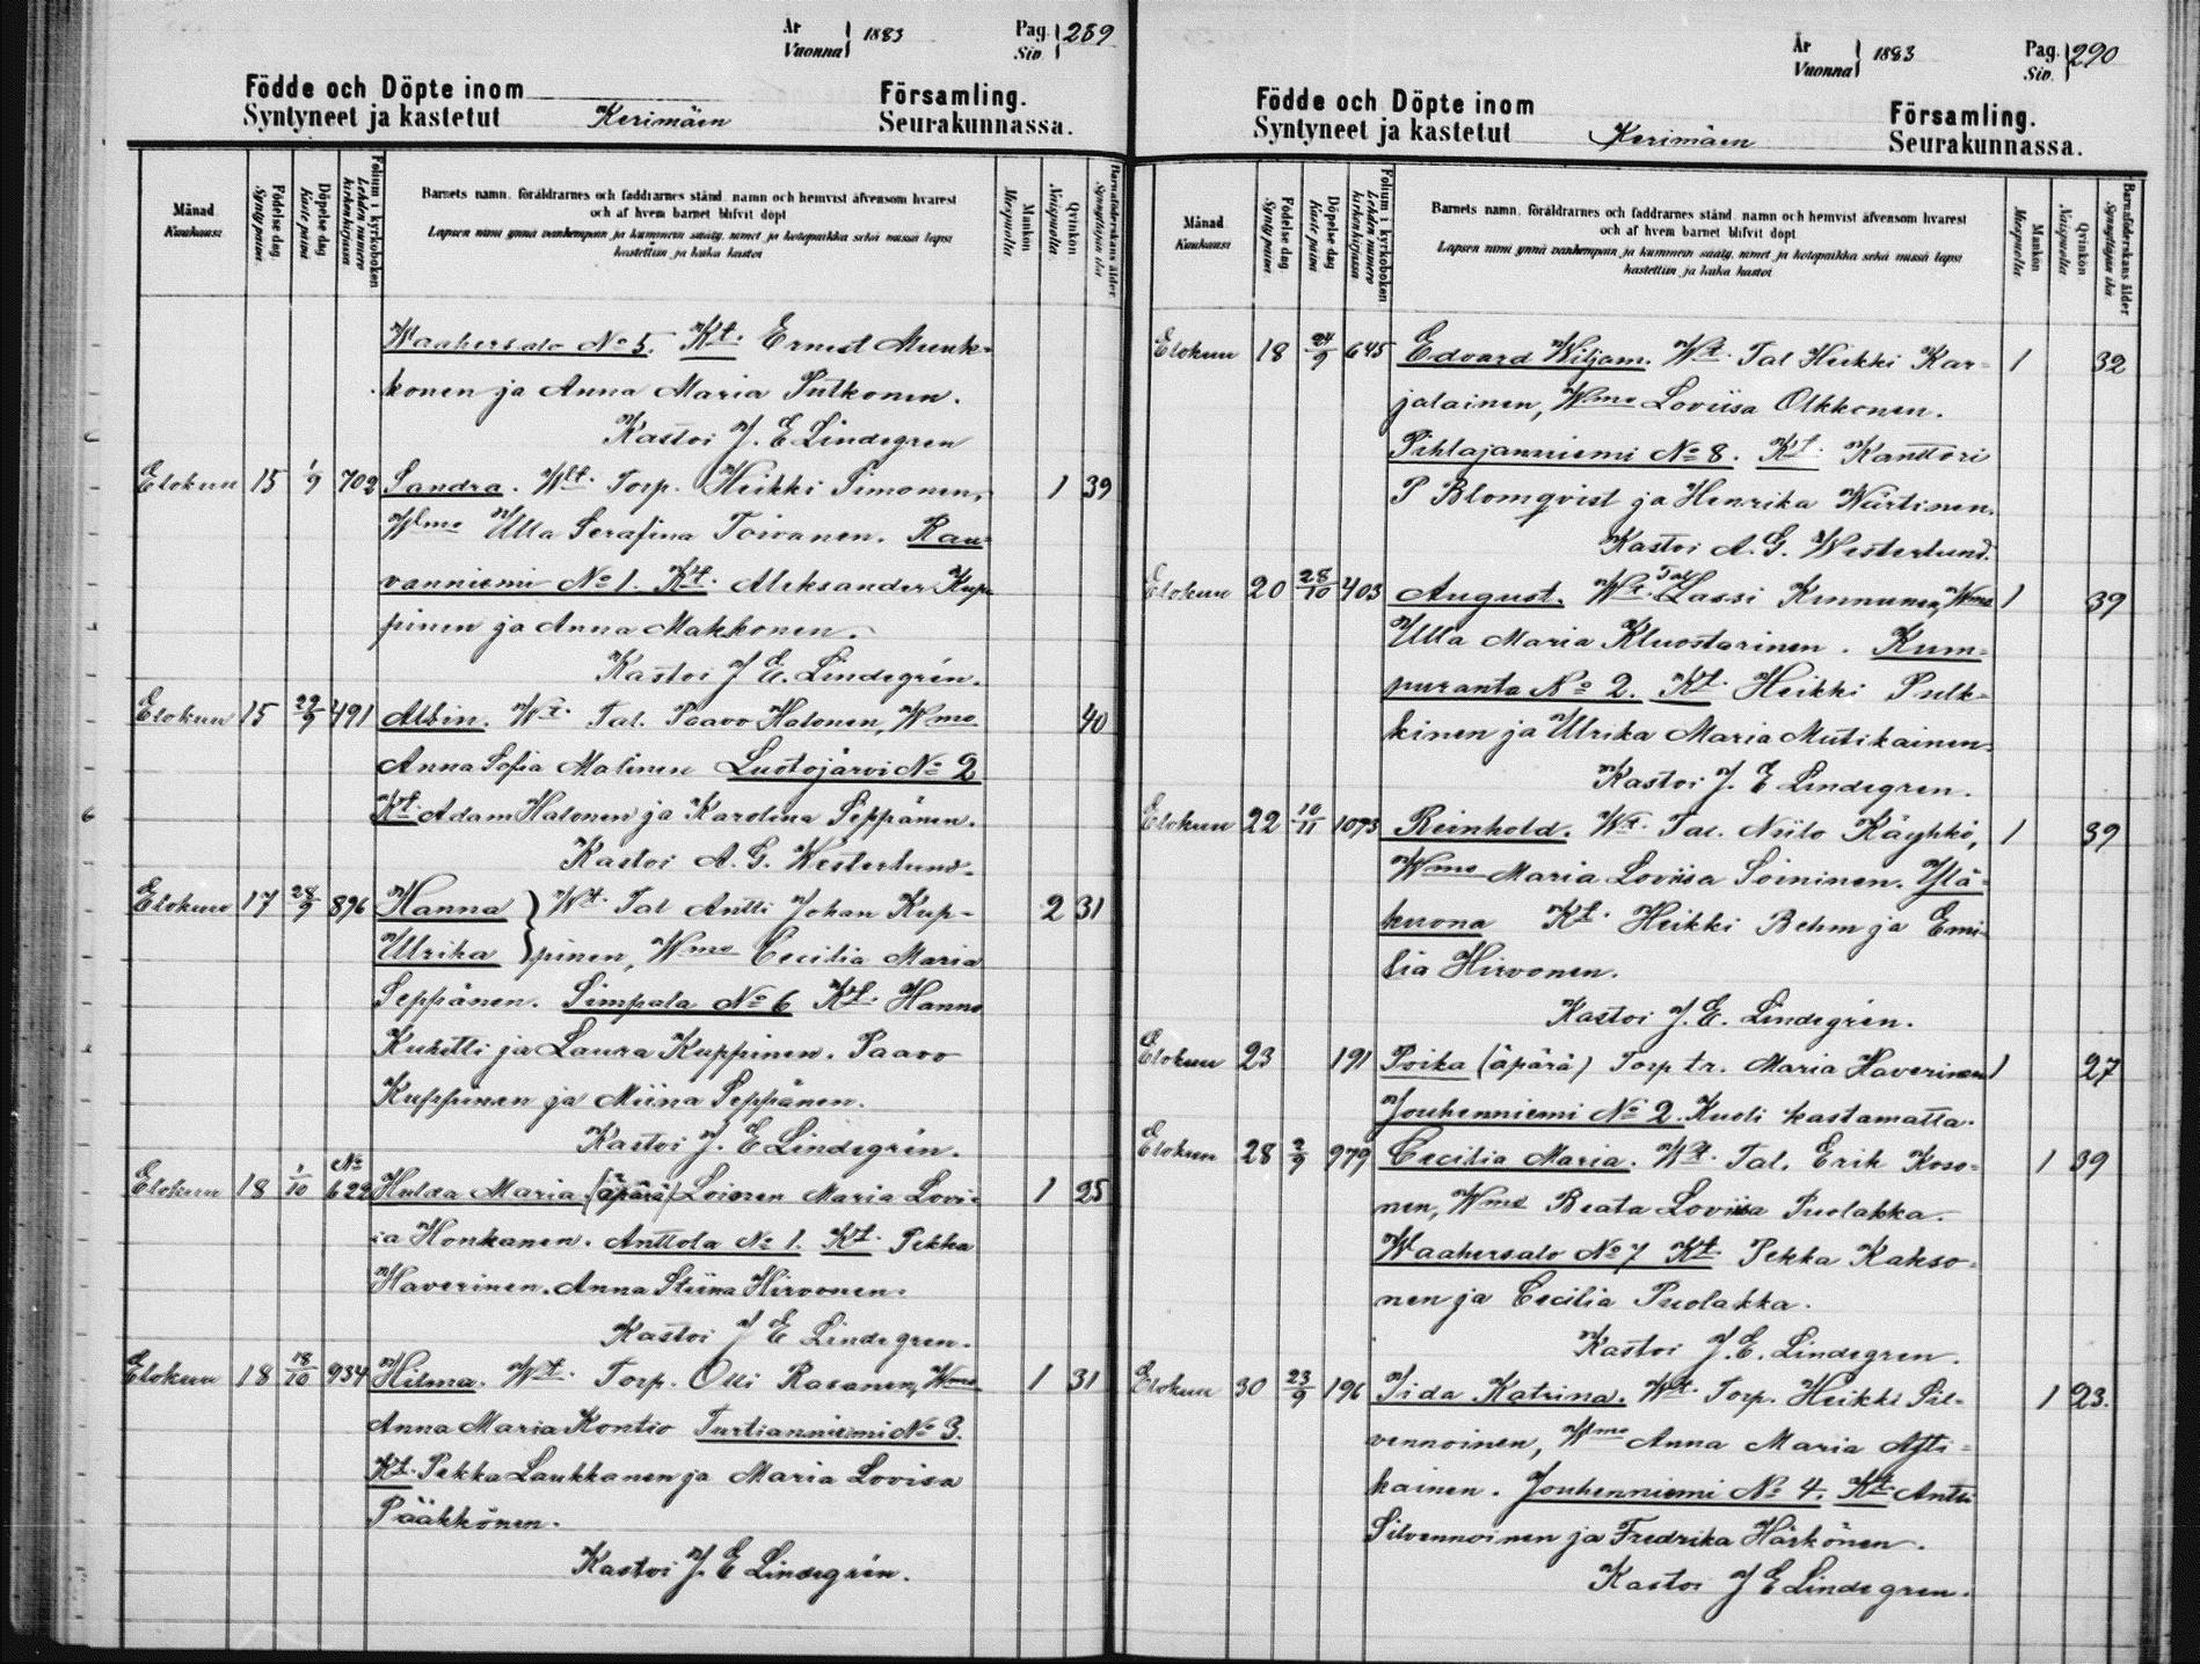 År
Vuonna } 1883
Pag.
Siv. } 289
Födde och Döpte inom Församling.
Syntyneet ja kastetut Kerimäen Seurakunnassa.
Månad
Kuukausi
Födelse dag
Synty päivä
Döpelse dag
Kaste päivä
Folium i kyrkoboken
Lehden numero kirkonkirjassa
Barnets namn, föräldrarnes och faddrarnes stånd, namn och hemvist äfvensom hvarest
och af hvem barnet blifvit döpt
Lapsen nimi ynnä vanhempain ja kummein sääty, nimet ja kotopaikka sekä missä lapsi
kastettiin ja kuka kastoi
Mankön
Miespuolta
Qvinkön
Naispuolta
Barnaföderskans ålder
Synnyttäjän ikä
Waahersalo No 5. Kt. Ernest Munk-
konen ja Anna Maria Putkonen.
Kastoi J. E Lindegren
Elokuu 15 1/9 702 Sandra. Wt. Torp. Heikki Simonen, 1 39
Wmo Ulla Serafina Toivanen. Rau-
vanniemi No 1. Kt. Aleksander Kup-
pinen ja Anna Makkonen.
Kastoi J E. Lindegrén.
Elokuu 15 22/9 491 Albin. Wt. Tal. Paavo Halonen, Wmo 40
Anna Sofia Malinen Lustojärvi No 2
Kt. Adam Halonen ja Karolina Seppänen.
Kastoi A. G. Westerlund.
Elokuu 17 28/9 896 Hanna } Wt. Tal Antti Johan Kup- 2 31
Ulrika } pinen, Wmo Cecilia Maria
Seppänen. Simpala No 6 Kt. Hannu
Kuhilli ja Laura Kuppinen. Paavo
Kuppinen ja Miina Seppänen.
Kastoi J. E Lindegrén.
Elokuu 18 1/10 No 622 Hulda Maria (äpärä) Loinen Maria Lovi- 1 25
ia Honkanen. Anttola No 1. Kt. Pekka
Haverinen. Anna Stiina Hirvonen.
Kastoi J E Lindegren.
Elokuu 18 18/10 934 Hilma. Wt. Torp. Olli Rasanen, Wmo 1 31
Anna Maria Kontio Turtianniemi No 3.
Kt. Pekka Laukkanen ja Maria Lovisa
Pääkkönen.
Kastoi J. E Lindegrén.
År
Vuonna } 1883
Pag.
Siv. } 290
Födde och Döpte inom Församling.
Syntyneet ja kastetut Kerimäen Seurakunnassa.
Månad
Kuukausi
Födelse dag
Synty päivä
Döpelse dag
Kaste päivä
Folium i kyrkoboken
Lehden numero kirkonkirjassa
Barnets namn, föräldrarnes och faddrarnes stånd, namn och hemvist äfvensom hvarest
och af hvem barnet blifvit döpt
Lapsen nimi ynnä vanhempain ja kummein sääty, nimet ja kotopaikka sekä missä lapsi
kastettiin ja kuka kastoi
Mankön
Miespuolta
Qvinkön
Naispuolta
Barnaföderskans ålder
Synnyttäjän ikä
Elokuu 18 24/9 645 Edvard Wiljam. Wt. Tal Heikki Kar- 1 32
jalainen, Wmo Loviisa Olkkonen.
Pihlajanniemi No 8. Kt. Kanttori
P Blomqvist ja Henrika Närtinen.
Kastoi A. G. Westerlund.
Elokuu 20 28/10 403 August. Wt. Tal Lassi Kinnunen, Wmo 1 39
Ulla Maria Kluostarinen. Kum-
puranta No 2. Kt. Heikki Pulk-
kinen ja Ulrika Maria Mutikainen.
Kastoi J. E Lindegren.
Elokuu 22 10/11 1093 Reinhold. Wt. Tal. Niilo Käyhkö, 1 39
Wmo Maria Loviisa Soininen. Ylä-
kuona Kt. Heikki Behm ja Emi-
lia Hirvonen.
Kastoi J. E. Lindegrén.
Elokuu 23 191 Poika (äpärä) Torp tr. Maria Haverinen 1 27
Jouhenniemi No 2. Kuoli kastamatta.
Elokuu 28 2/9 979 Cecilia Maria. Wt. Tal. Erik Koso- 1 39
nen, Wmo Beata Loviisa Puolakka.
Waahersalo No 7 Kt. Pekka Kakso-
nen ja Cecilia Puolakka.
Kastoi J. E. Lindegren.
Elokuu 30 23/9 196 Iida Katrina. Wt. Torp. Heikki Sil- 1 23.
vennoinen, Wmo Anna Maria
kainen. Jouhenniemi No 4. Kt. Antti
Silvennoinen ja Fredrika Härkönen.
Kastoi J E Lindegren.